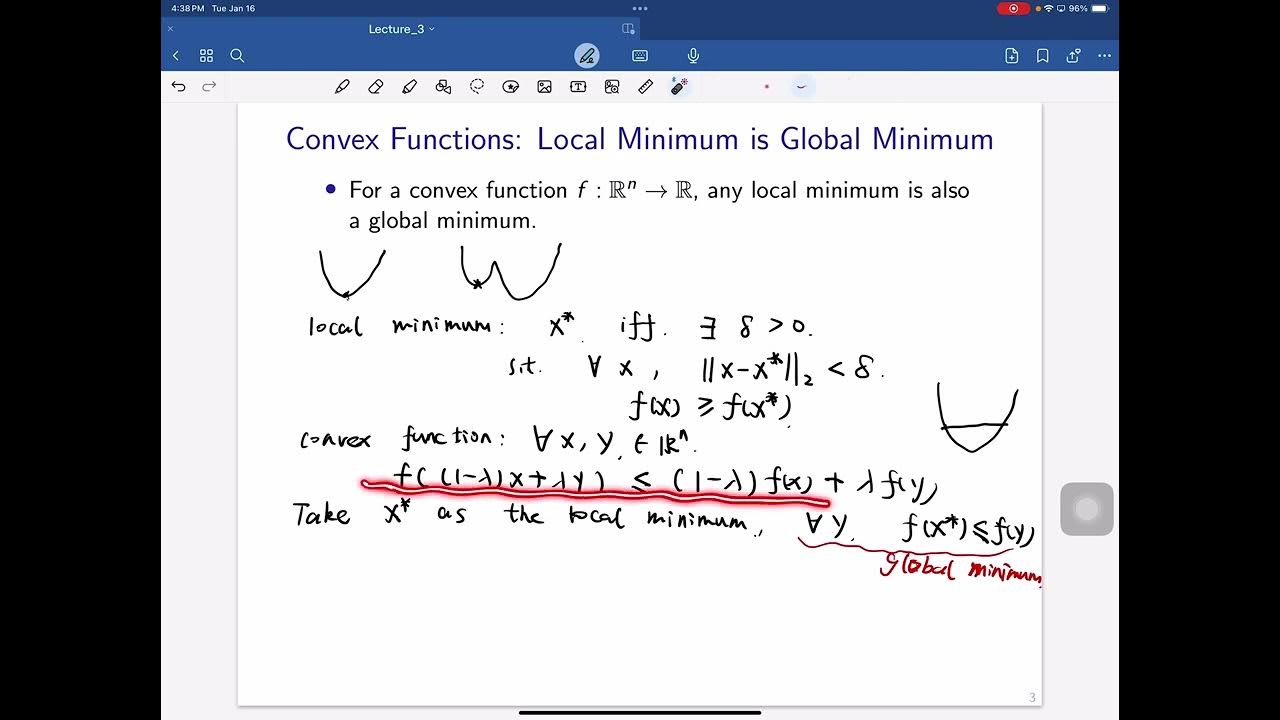 4:38 PM Tue Jan 16
96%
Lecture_3
Convex Functions: Local Minimum is Global Minimum
• For a convex function f : ℝⁿ → ℝ, any local minimum is also
a global minimum.
local minimum: x* iff. ∃ δ > 0.
s.t. ∀ x, ||x-x*||₂ < δ.
f(x) ≥ f(x*)
convex function: ∀ x, y ∈ ℝⁿ.
f((1-λ)x+λy) ≤ (1-λ)f(x) + λf(y)
Take x* as the local minimum, ∀ y. f(x*) ≤ f(y)
global minimum.
3